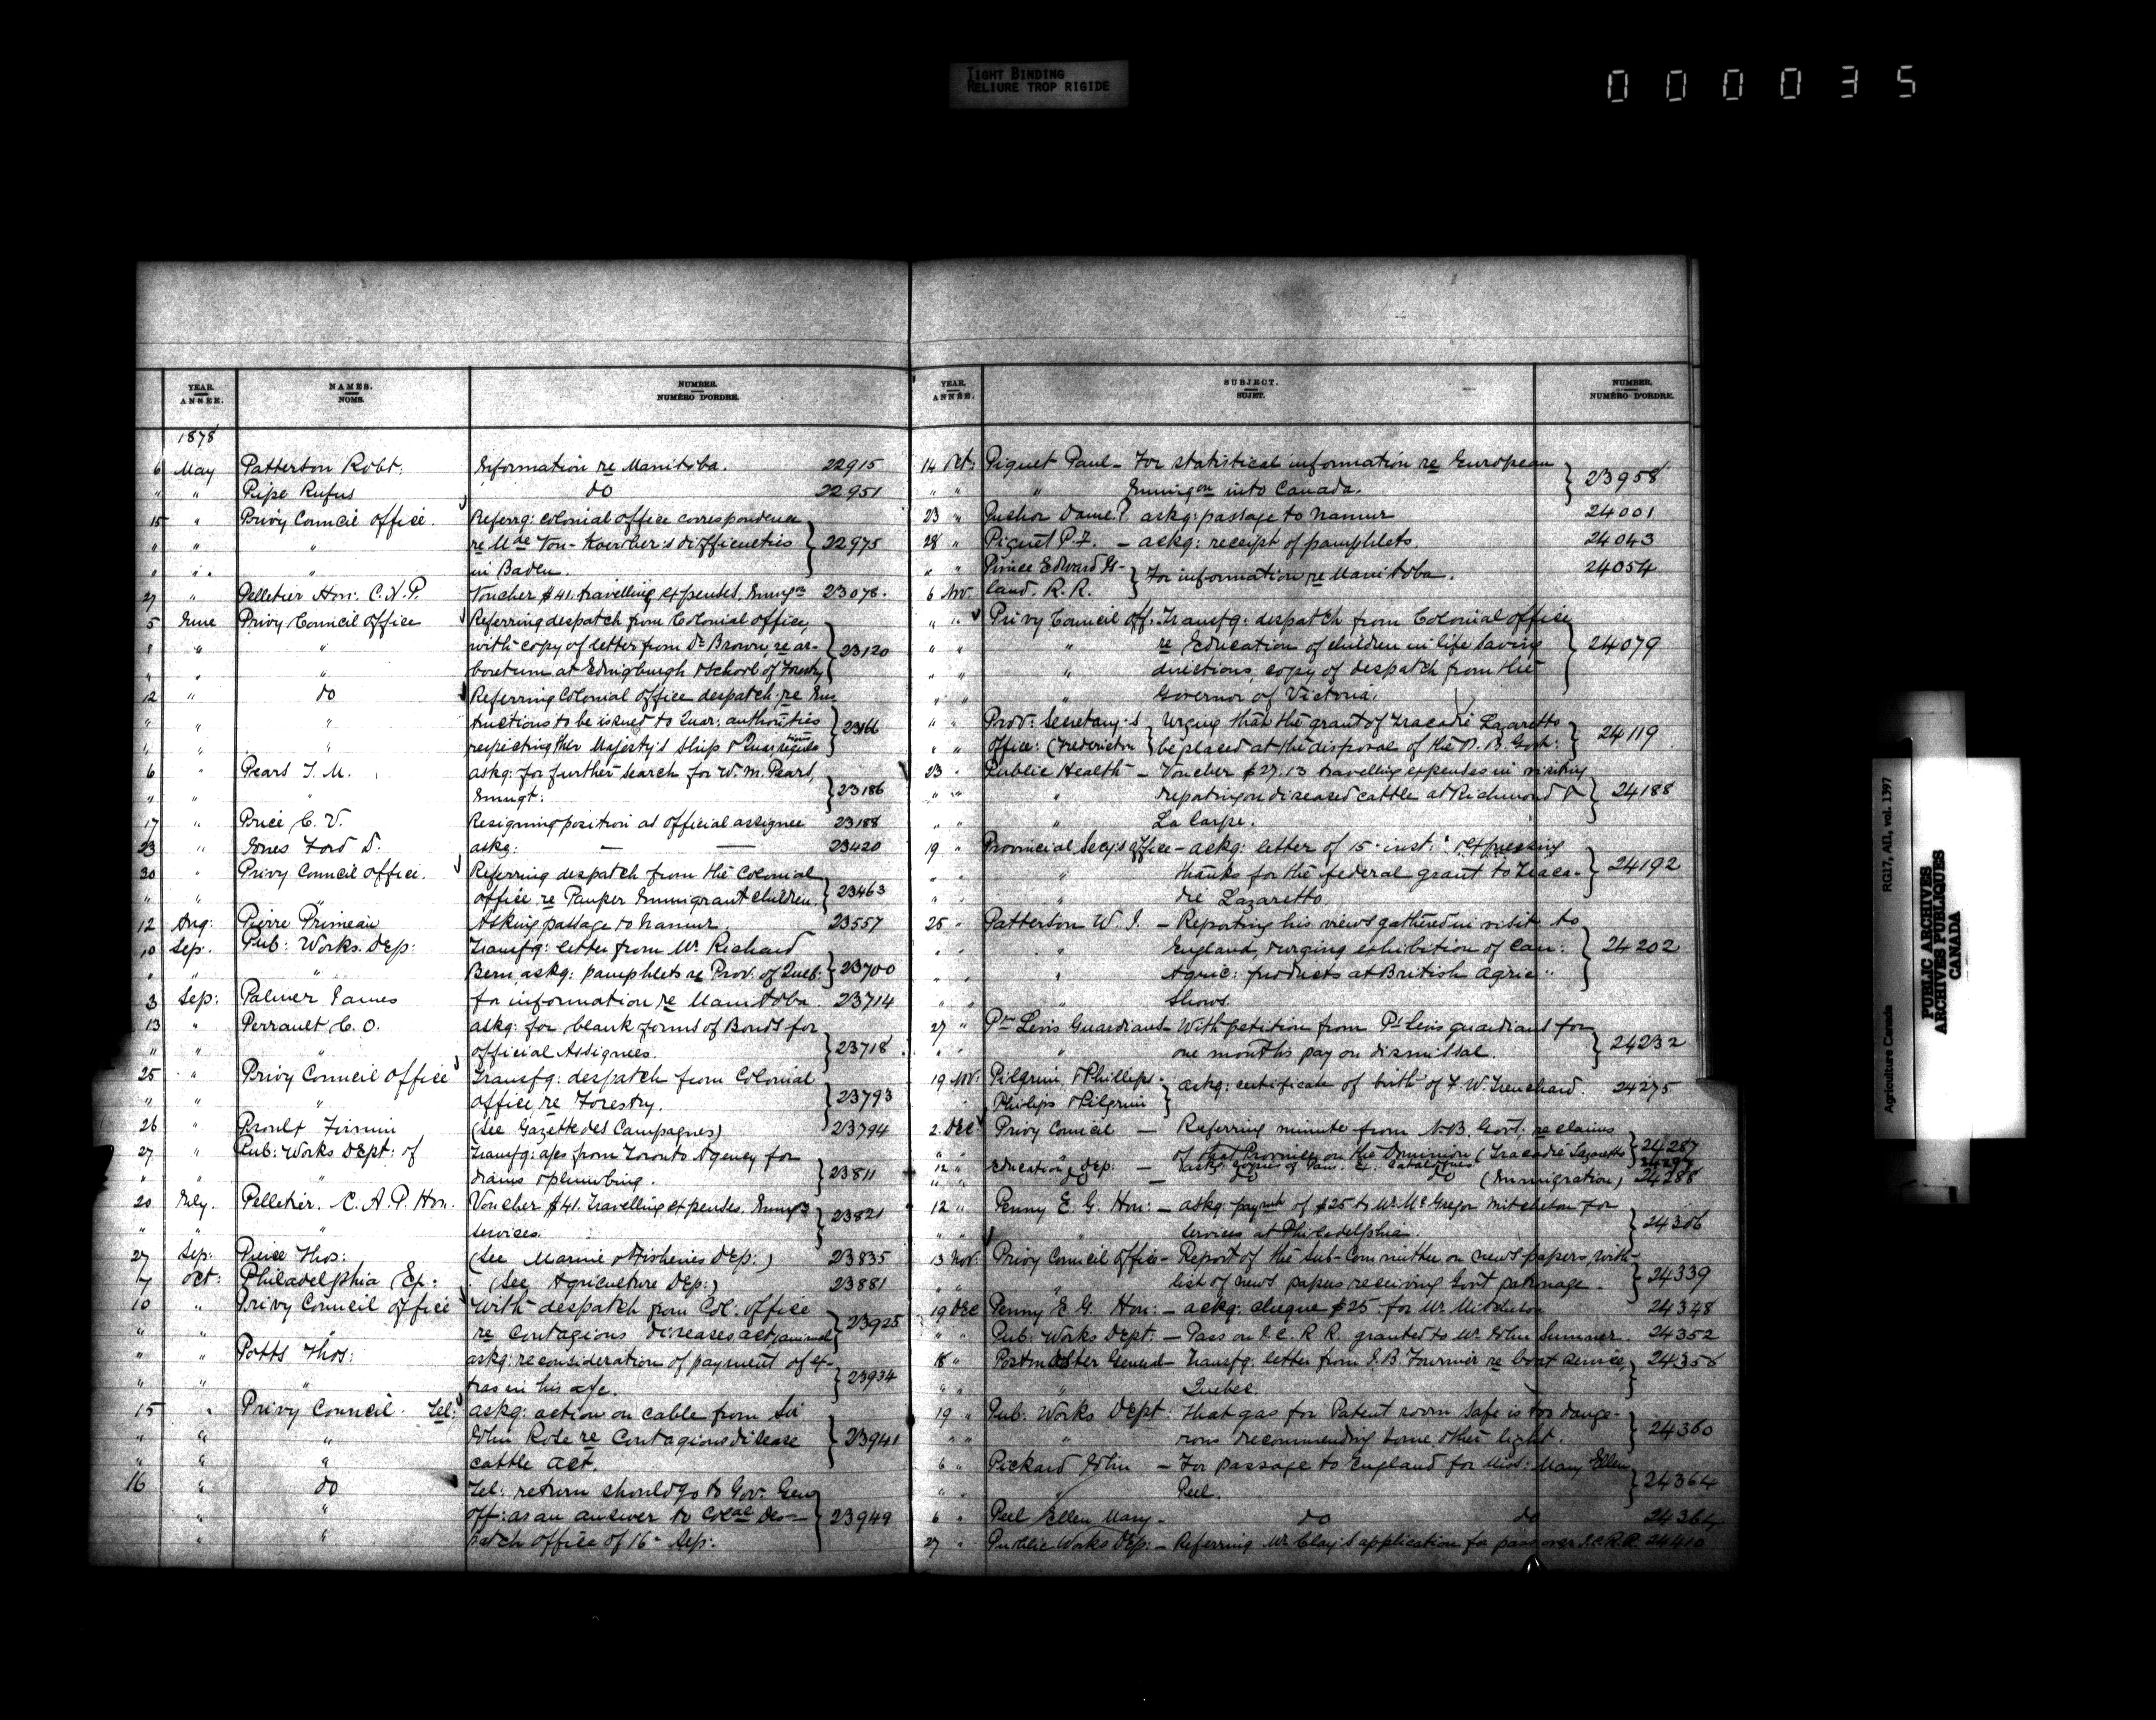 TIGHT BINDING
RELIURE TROP RIGIDE
000035
YEAR. ANNÉE. NAMES. NOMS. NUMBER. NUMÉRO D'ORDRE.
1878
6 May Patterson Robt. Information re Manitoba. 22915
" " Pipe Rufus do 22951
15 " Privy Council office. Referrg: colonial office correspondence
" " " re Mde Von-Koerber's difficulties } 22975
" " " in Baden.
27 " Pelletier Hon: C.A.P. Voucher $41. travelling expenses, 23078.
5 June Privy Council office Referring despatch from Colonial office,
" " " with copy of letter from Dr Brown, re ar- } 23120
" " " boretum at Edingburgh & School of Forestry
12 " do Referring Colonial office despatch re Ins
" " " tructions to be issued to Quar: authorities } 23166
" " " respecting Her Majesty's Ship & Quar:
6 " Pears T. M. askg: for further search for W. M. Pears,
" " " Emmgt: } 23186
17 " Price C. V. Resigning position as official assignee 23188
23 " Jones Ford D. askg: — — 23420
30 " Privy Council office. Referring despatch from the Colonial
" " " office re Pauper Immigrant children. } 23463
12 Aug: Pierre Primeau Asking passage to Namur. 23557
10 Sep: Pub: Works. Dep: Transfg: letter from Mr. Richard
" " " Bern, askg: pamphlets re Prov: of Queb: } 23700
3 Sep: Palmer James for information re Manitoba. 23714
13 " Perrault C. O. askg: for blank forms of Bonds for
" " " official Assignees. } 23718.
25 " Privy Council Office Transfg: despatch from Colonial
" " " office, re Forestry. } 23793
26 " Proulx Firmin (See Gazette des Campagnes) 23794
27 " Pub: Works Dept: of Transfg: a/cs from Toronto Agency for
" " " drains & plumbing. } 23811
20 July. Pelletier. C. A. P. Hon. Voucher $41. Travelling expenses.
" " services. } 23821
27 Sep: Pierce Thos: (See Marine & Fisheries Dep:) 23835
7 Oct: Philadelphia Ex: (See Agriculture Dep:) 23881
10 " Privy Council office With despatch from Col: office
" " " re contagious diseases act (animal } 23925
" " Potts Thos: askg: reconsideration of payment of ex-
" " " tras in his a/c. } 23934
15 " Privy Council. Tel: askg: action on cable from Sir
" " " John Rose re Contagious disease } 23941
" " " cattle act.
16 " do Tel: return should go to Gov: Gen
" " " off: as an answer to Col Des- } 23949
" " " patch office of 16th Sep:
YEAR. ANNÉE. SUBJECT. SUJET. NUMBER. NUMÉRO D'ORDRE.
14 Oct: Piquet Paul - For statistical information re European
" " " Immigon into Canada. } 23958
23 " Dame? askg: passage to Namur 24001
28 " Piquet P. F. - ackg: receipt of pamphlets. 24043
" " Prince Edward Is- } For information re Manitoba. 24054
6 Nov. land. R. R.
" " Privy Council off. Transfg: despatch from Colonial office
" " " re Education of children in life saving } 24079
" " " directions, copy of despatch from the
" " " Governor of Victoria.
" " Prov: Secretary's } Urging that the grant of Tracadie Lazaretto
" " office: (Fredericton be placed at the disposal of the N. B. Govt: } 24119
23 " Public Health - Voucher $27.13 travelling expenses in visiting
" " " reporting on diseased cattle at Richmond & } 24188
" " " La Carpe.
19 " Provincial Secy's office - ackg: letter of 15 inst: expressing
" " " thanks for the federal grant to Traca- } 24192
" " " die Lazaretto
25 " Patterson W. J. - Reporting his views gathered in visit to
" " " England, & urging exhibition of Can: } 24202
" " " Agric: products at British Agric "
" " " Shows.
27 " Pt Levis Guardians - With petition from Pt Levis guardians for
" " " one month's pay on dismissal. } 24232
19 Nov: Pilgrim & Phillips } askg: certificate of birth of F. W. Trenchard. 24275
Philips & Pilgrim
2 Dec Privy Council - Referring minute from N.B. Govt: re claims
" " of that Province on the Dominion (Tracadie Lazaretto } 24287
12 " Education, Dep: - askg: copies of Ex: catalogues
" " do - do do (Immigration) 24288
12 " Penny E. G. Hon: - askg: paymt of $25 to Mr. McGregor for
" services at Philadelphia. } 24306
13 Nov: Privy Council office - Report of the Sub-Committee on news papers, with
" " list of news papers receiving Govt patronage. } 24339
19 Dec Penny E. G. Hon: - ackg: cheque $25 for Mr. 24348
" " Pub: Works Dept: - Pass on I. C. R R. granted to Mr. John Sumner. 24352
18 " Postmaster General - Transfg: letter from J. B. Fournier re boat service, } 24356
" " " Quebec.
19 " Pub: Works Dept: that gas for Patent room safe is too dange-
" " " rous recommending some other light. } 24360
6 " Pickard John - For passage to England for Miss: Mary Ellen
" " " Peel. } 24364
6 " Peel Ellen Mary - do do 24364
27 " Public Works Dep: - Referring Mr. Clay's application for pass over I.C.R.R. 24410
Agriculture Canada RG17, AII, vol. 1397
PUBLIC ARCHIVES
ARCHIVES PUBLIQUES
CANADA